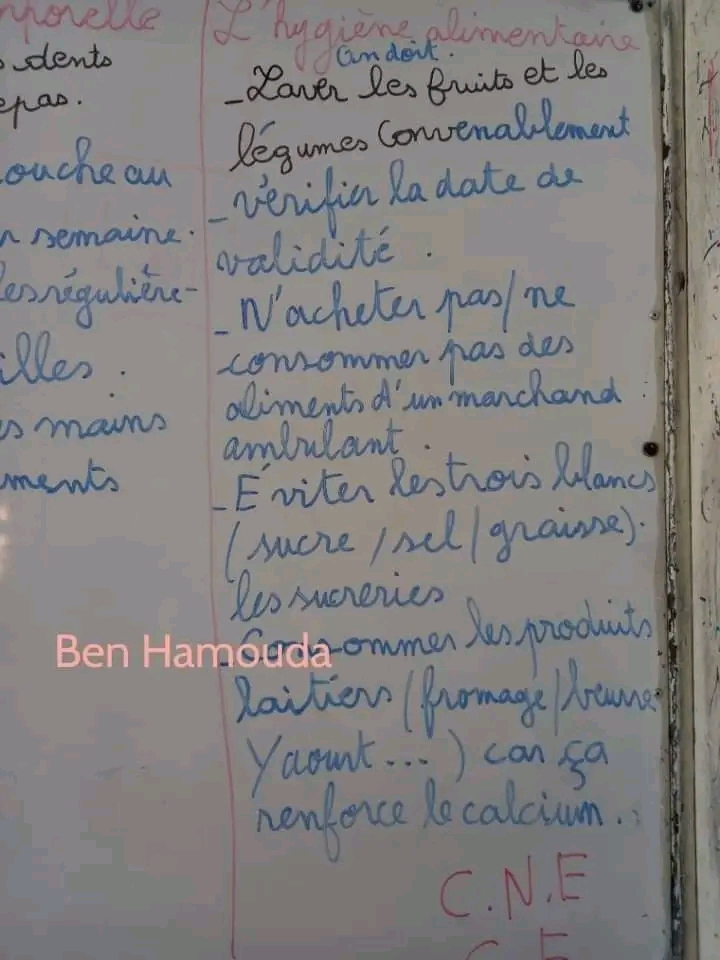 rporelle
s dents
epas.
ouche au
r semaine.
les régulière-
illes.
es mains
ments
L'hygiène alimentaire
On doit.
- Laver les fruits et les
légumes convenablement
- vérifier la date de
validité.
- N'acheter pas/ ne
consommer pas des
aliments d'un marchand
ambulant.
- Éviter les trois blancs
(sucre / sel / graisse).
les sucreries
- Consommer les produits
laitiers (fromage/beurre
Yaourt...) car ça
renforce le calcium.
C.N.E
Ben Hamouda